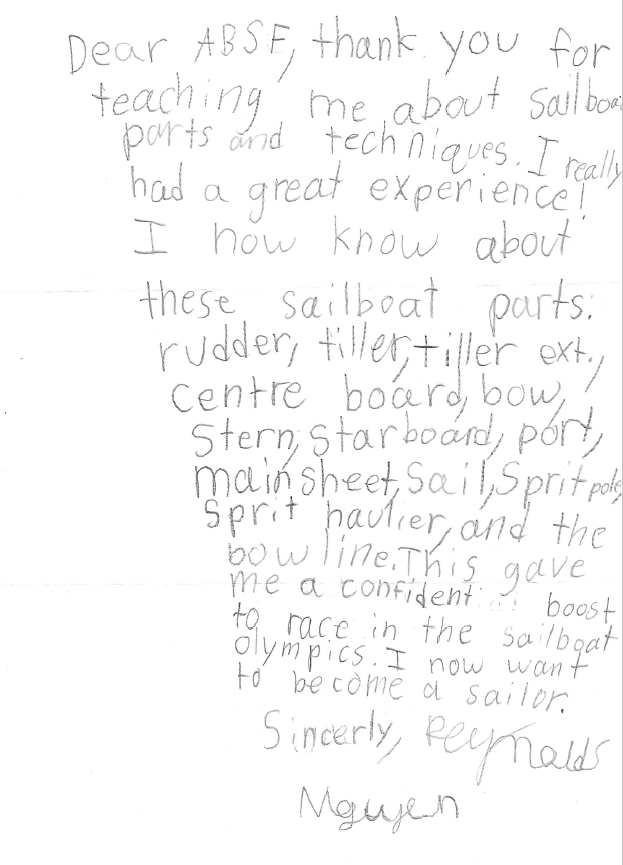 Dear ABSF, thank you for
teaching me about sailboa
parts and techniques. I really
had a great experience!
I now know about
these sailboat parts:
rudder, tiller, tiller ext.,
centre board, bow,
stern, starboard, port,
mainsheet, Sail, Sprit pole,
sprit haulier, and the
bow line. This gave
me a confident boost
to race in the sailboat
olympics. I now want
to become a sailor.
Sincerly, Reynalds
Nguyen